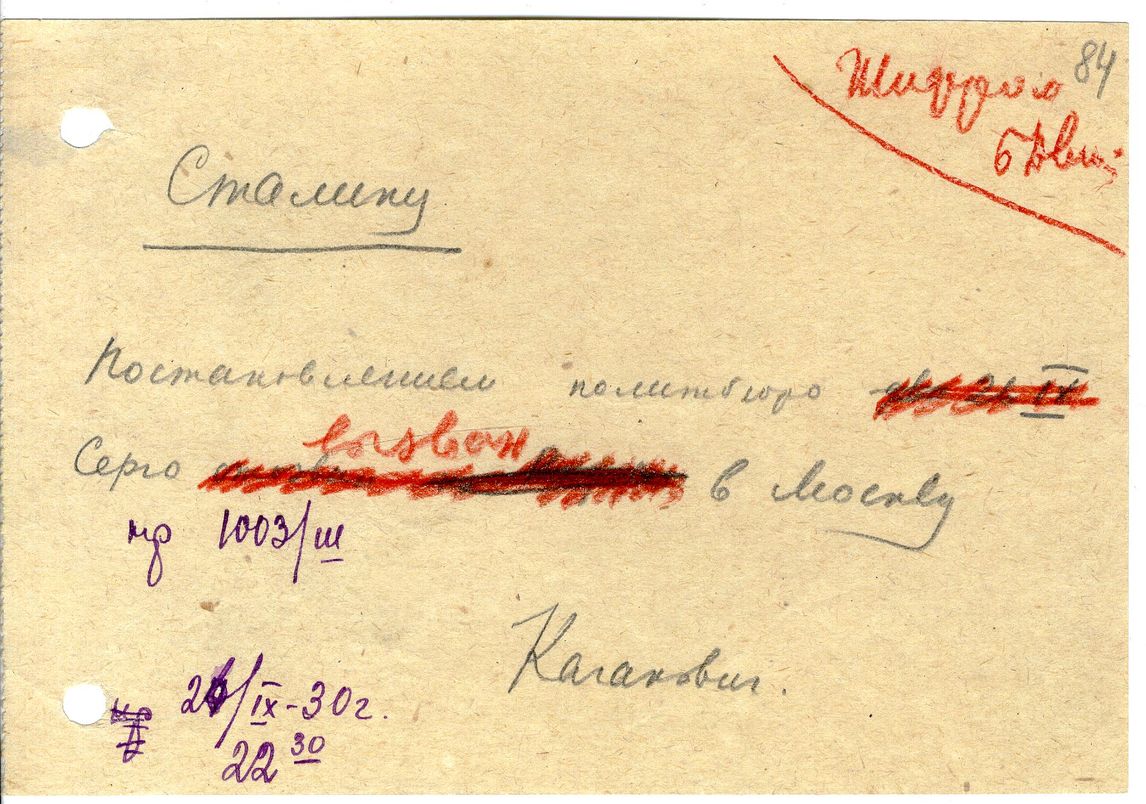 84
Шифром
Сталину
Постановлением политбюро IX
Серго вызван в Москву
нр 1003/ш
Каганович.
26/IX-30г.
22 30